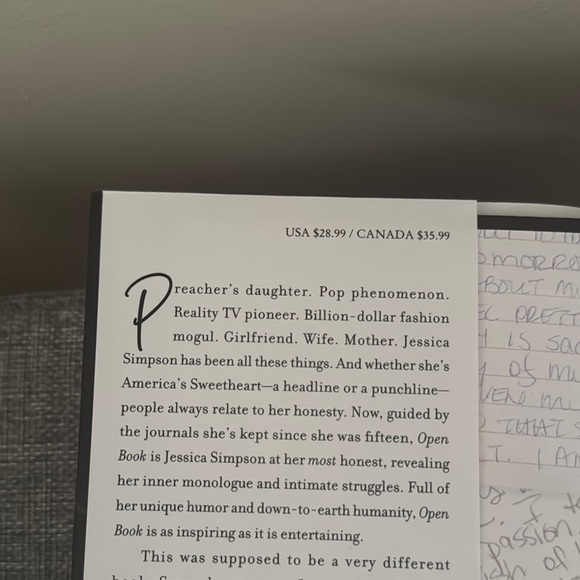 USA $28.99 / CANADA $35.99
Preacher's daughter. Pop phenomenon.
Reality TV pioneer. Billion-dollar fashion
mogul. Girlfriend. Wife. Mother. Jessica
Simpson has been all these things. And whether she's
America's Sweetheart—a headline or a punchline—
people always relate to her honesty. Now, guided by
the journals she's kept since she was fifteen, Open
Book is Jessica Simpson at her most honest, revealing
her inner monologue and intimate struggles. Full of
her unique humor and down-to-earth humanity, Open
Book is as inspiring as it is entertaining.
This was supposed to be a very different
PRETT
IS
OF
THAT
I
passion
of